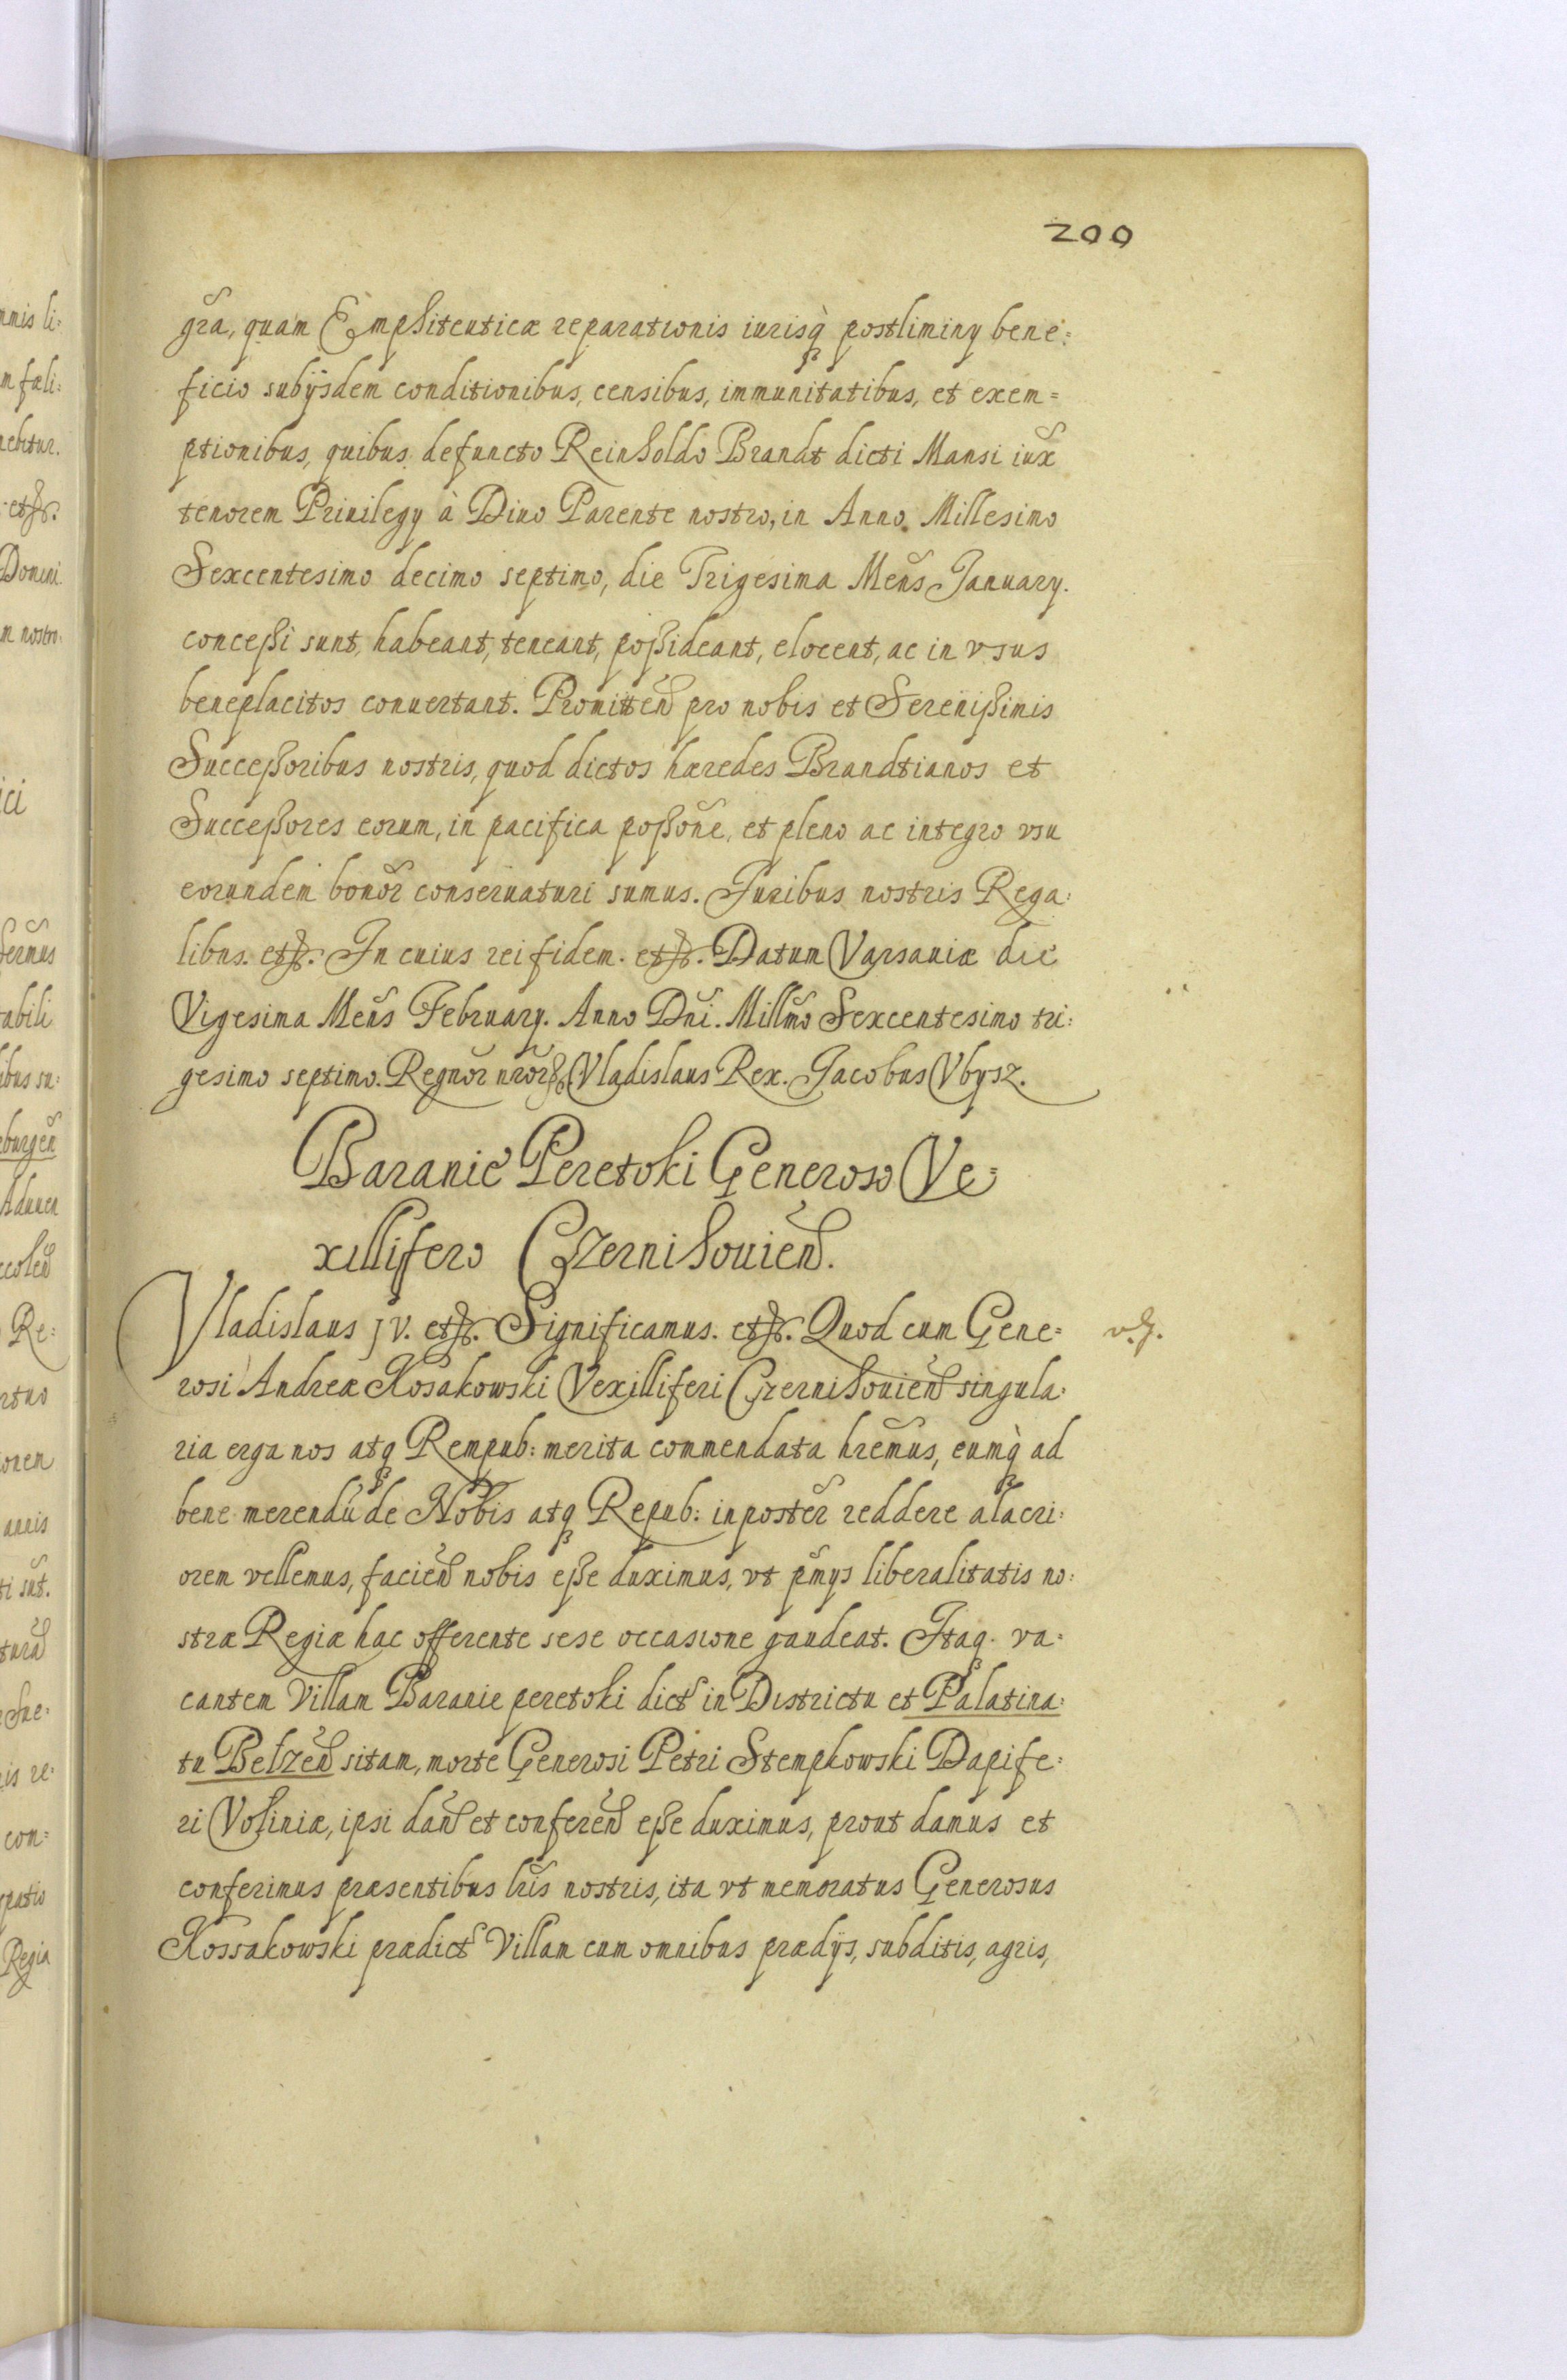 200
gra, quam Emphiteuticæ reparationis iurisq̀ postliminy bene=
ficio subijsdem conditionibus, censibus, immunitatibus, et exem=
ptionibus, quibus defuncto Reinholdo Brandt dicti Mansi iux
tenorem Priuilegy à Diuo Parente nostro, in Anno Millesimo
Sexcentesimo decimo septimo, die Trigesima Mens January.
conceßi sunt, habeant, teneant, poßideant, elocent, ac in vsus
beneplacitos conuertant. Promitten pro nobis et Serenißimis
Succeßoribus nostris, quod dictos hæredes Brandtianos et
Succeßores eorum, in pacifica poßone, et pleno ac integro vsu
eorundem bonor conseruaturi sumus. Juribus nostris Rega=
libus. etc. In cuius rei fidem. etc. Datum Varsauiæ die
Vigesima Mens February. Anno Dni. Millmo Sexcentesimo tri=
gesimo septimo. Regnor nror etc Vladislaus Rex. Jacobus Vbysz.
Baranie Peretoki Generoso Ve=
xillifero Czernihouien.
Vladislaus JV. etc. Significamus. etc. Quod cum Gene=
v. g.
rosi Andreæ Kosakowski Vexilliferi Czernihouien singula=
ria erga nos atq Rempub: merita commendata hremus, eumq̀ ad
bene merendū de Nobis atq Repub: inposter reddere alacri=
orem vellemus, facien nobis eße duximus, vt pmys liberalitatis no=
stræ Regiæ hac offerente sese occasione gaudeat. Itaq va=
cantem Villam Baranie peretoki dict in Districtu et Palatina=
tu Belzen sitam, morte Generosi Petri Stempkowski Dapife=
ri Voliniæ, ipsi dan et conferen eße duximus, prout damus et
conferimus præsentibus lris nostris, ita vt memoratus Generosus
Kossakowski prædict Villam cum omnibus prædijs, subditis, agris,